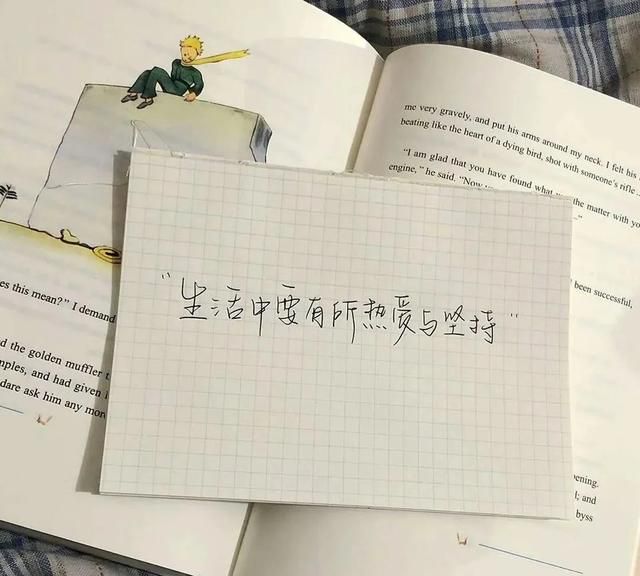 me very gravely, and put his arms around my neck. I felt his
beating like the heart of a dying bird, shot with someone's rifle
"I am glad that you have found what
the matter with you
engine," he said. "Now
"生活中要有所热爱与坚持"
been successful,
es this mean?" I demand
d the golden muffler
mples, and had given
dare ask him any mor
ening.
; and
byss